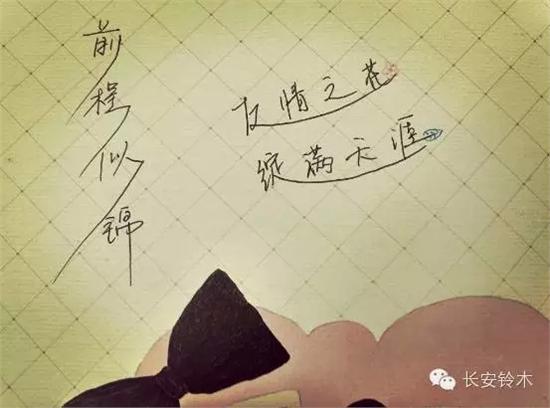 前程似锦
友情之花
绽满天涯
长安铃木